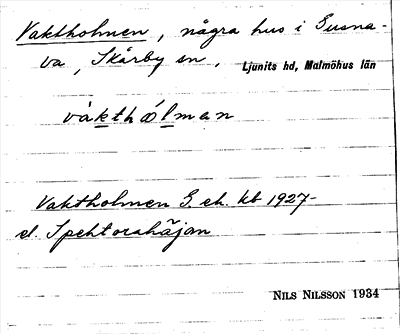 Vaktholmen, några hus i Gusna-
va, Skårby sn, Ljunits hd, Malmöhus län
våkthólman
Vaktholmen G. eh. kb 1927-
el. Spektorahäjan
NILS NILSSON 1934